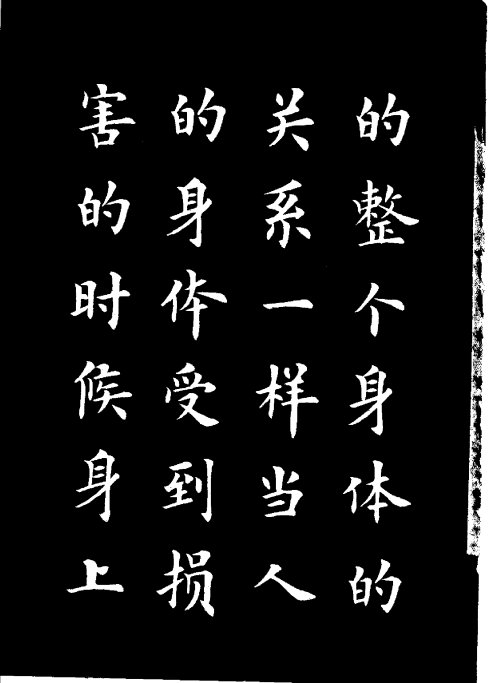 的整个身体的
关系一样当人
的身体受到损
害的时候身上